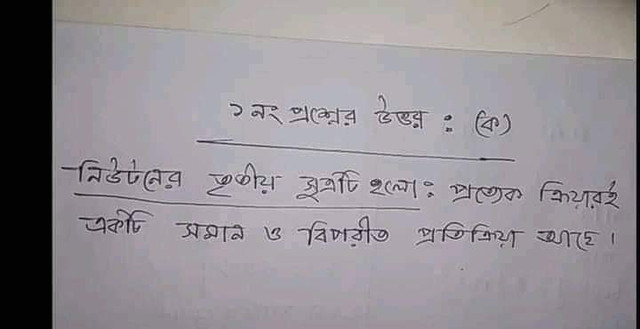 ১নং প্রশ্নের উত্তর : (ক)
নিউটনের তৃতীয় সূত্রটি হলো: প্রত্যেক ক্রিয়ারই
একটি সমান ও বিপরীত প্রতিক্রিয়া আছে।